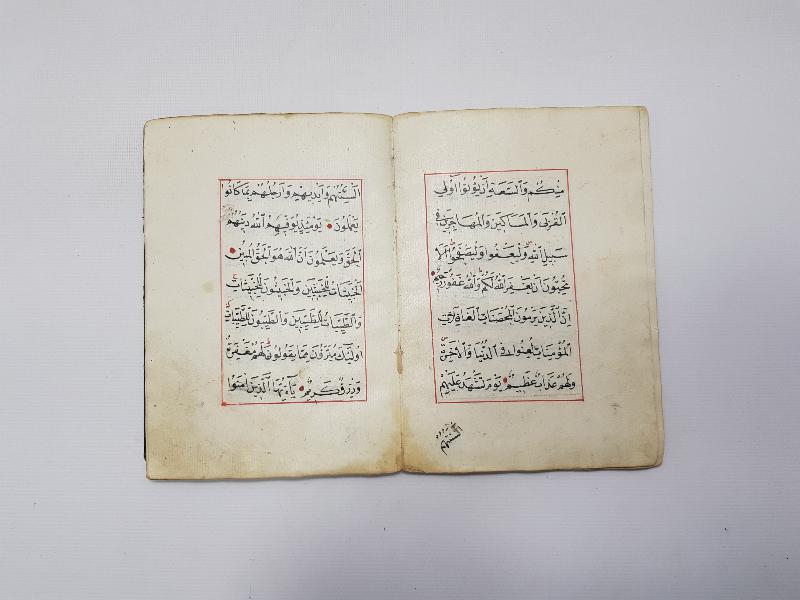 مِنْكُمْ وَالسَّعَةِ أَنْ يُؤْتُوا أُولِي
الْقُرْبَى وَالْمَسَاكِينَ وَالْمُهَاجِرِينَ فِي
سَبِيلِ اللَّهِ وَلْيَعْفُوا وَلْيَصْفَحُوا أَلَا
تُحِبُّونَ أَنْ يَغْفِرَ اللَّهُ لَكُمْ وَاللَّهُ غَفُورٌ رَحِيمٌ
إِنَّ الَّذِينَ يَرْمُونَ الْمُحْصَنَاتِ الْغَافِلَاتِ
الْمُؤْمِنَاتِ لُعِنُوا فِي الدُّنْيَا وَالْآخِرَةِ
وَلَهُمْ عَذَابٌ عَظِيمٌ يَوْمَ تَشْهَدُ عَلَيْهِمْ
أَلْسِنَتُهُمْ
أَلْسِنَتُهُمْ وَأَيْدِيهِمْ وَأَرْجُلُهُمْ بِمَا كَانُوا
يَعْمَلُونَ يَوْمَئِذٍ يُوَفِّيهِمُ اللَّهُ دِينَهُمُ
الْحَقَّ وَيَعْلَمُونَ أَنَّ اللَّهَ هُوَ الْحَقُّ الْمُبِينُ
الْخَبِيثَاتُ لِلْخَبِيثِينَ وَالْخَبِيثُونَ لِلْخَبِيثَاتِ
وَالطَّيِّبَاتُ لِلطَّيِّبِينَ وَالطَّيِّبُونَ لِلطَّيِّبَاتِ
أُولَئِكَ مُبَرَّءُونَ مِمَّا يَقُولُونَ لَهُمْ مَغْفِرَةٌ
وَرِزْقٌ كَرِيمٌ يَا أَيُّهَا الَّذِينَ آمَنُوا